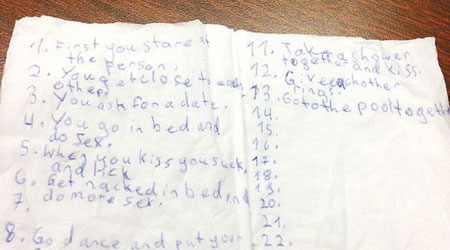 1. First you stare at
the person.
2. You get close to each
other.
3. You ask for a date.
4. You go in bed and
do sex.
5. When you kiss you suck
and lick
6. Get nacked in bed and
7. do more sex.
8. Go dance and put your
11. Take a shower
together and kiss.
12. Give eachother
rings.
13. Go to the pool togeth
14.
15.
16.
17.
18.
19.
20.
21.
22.